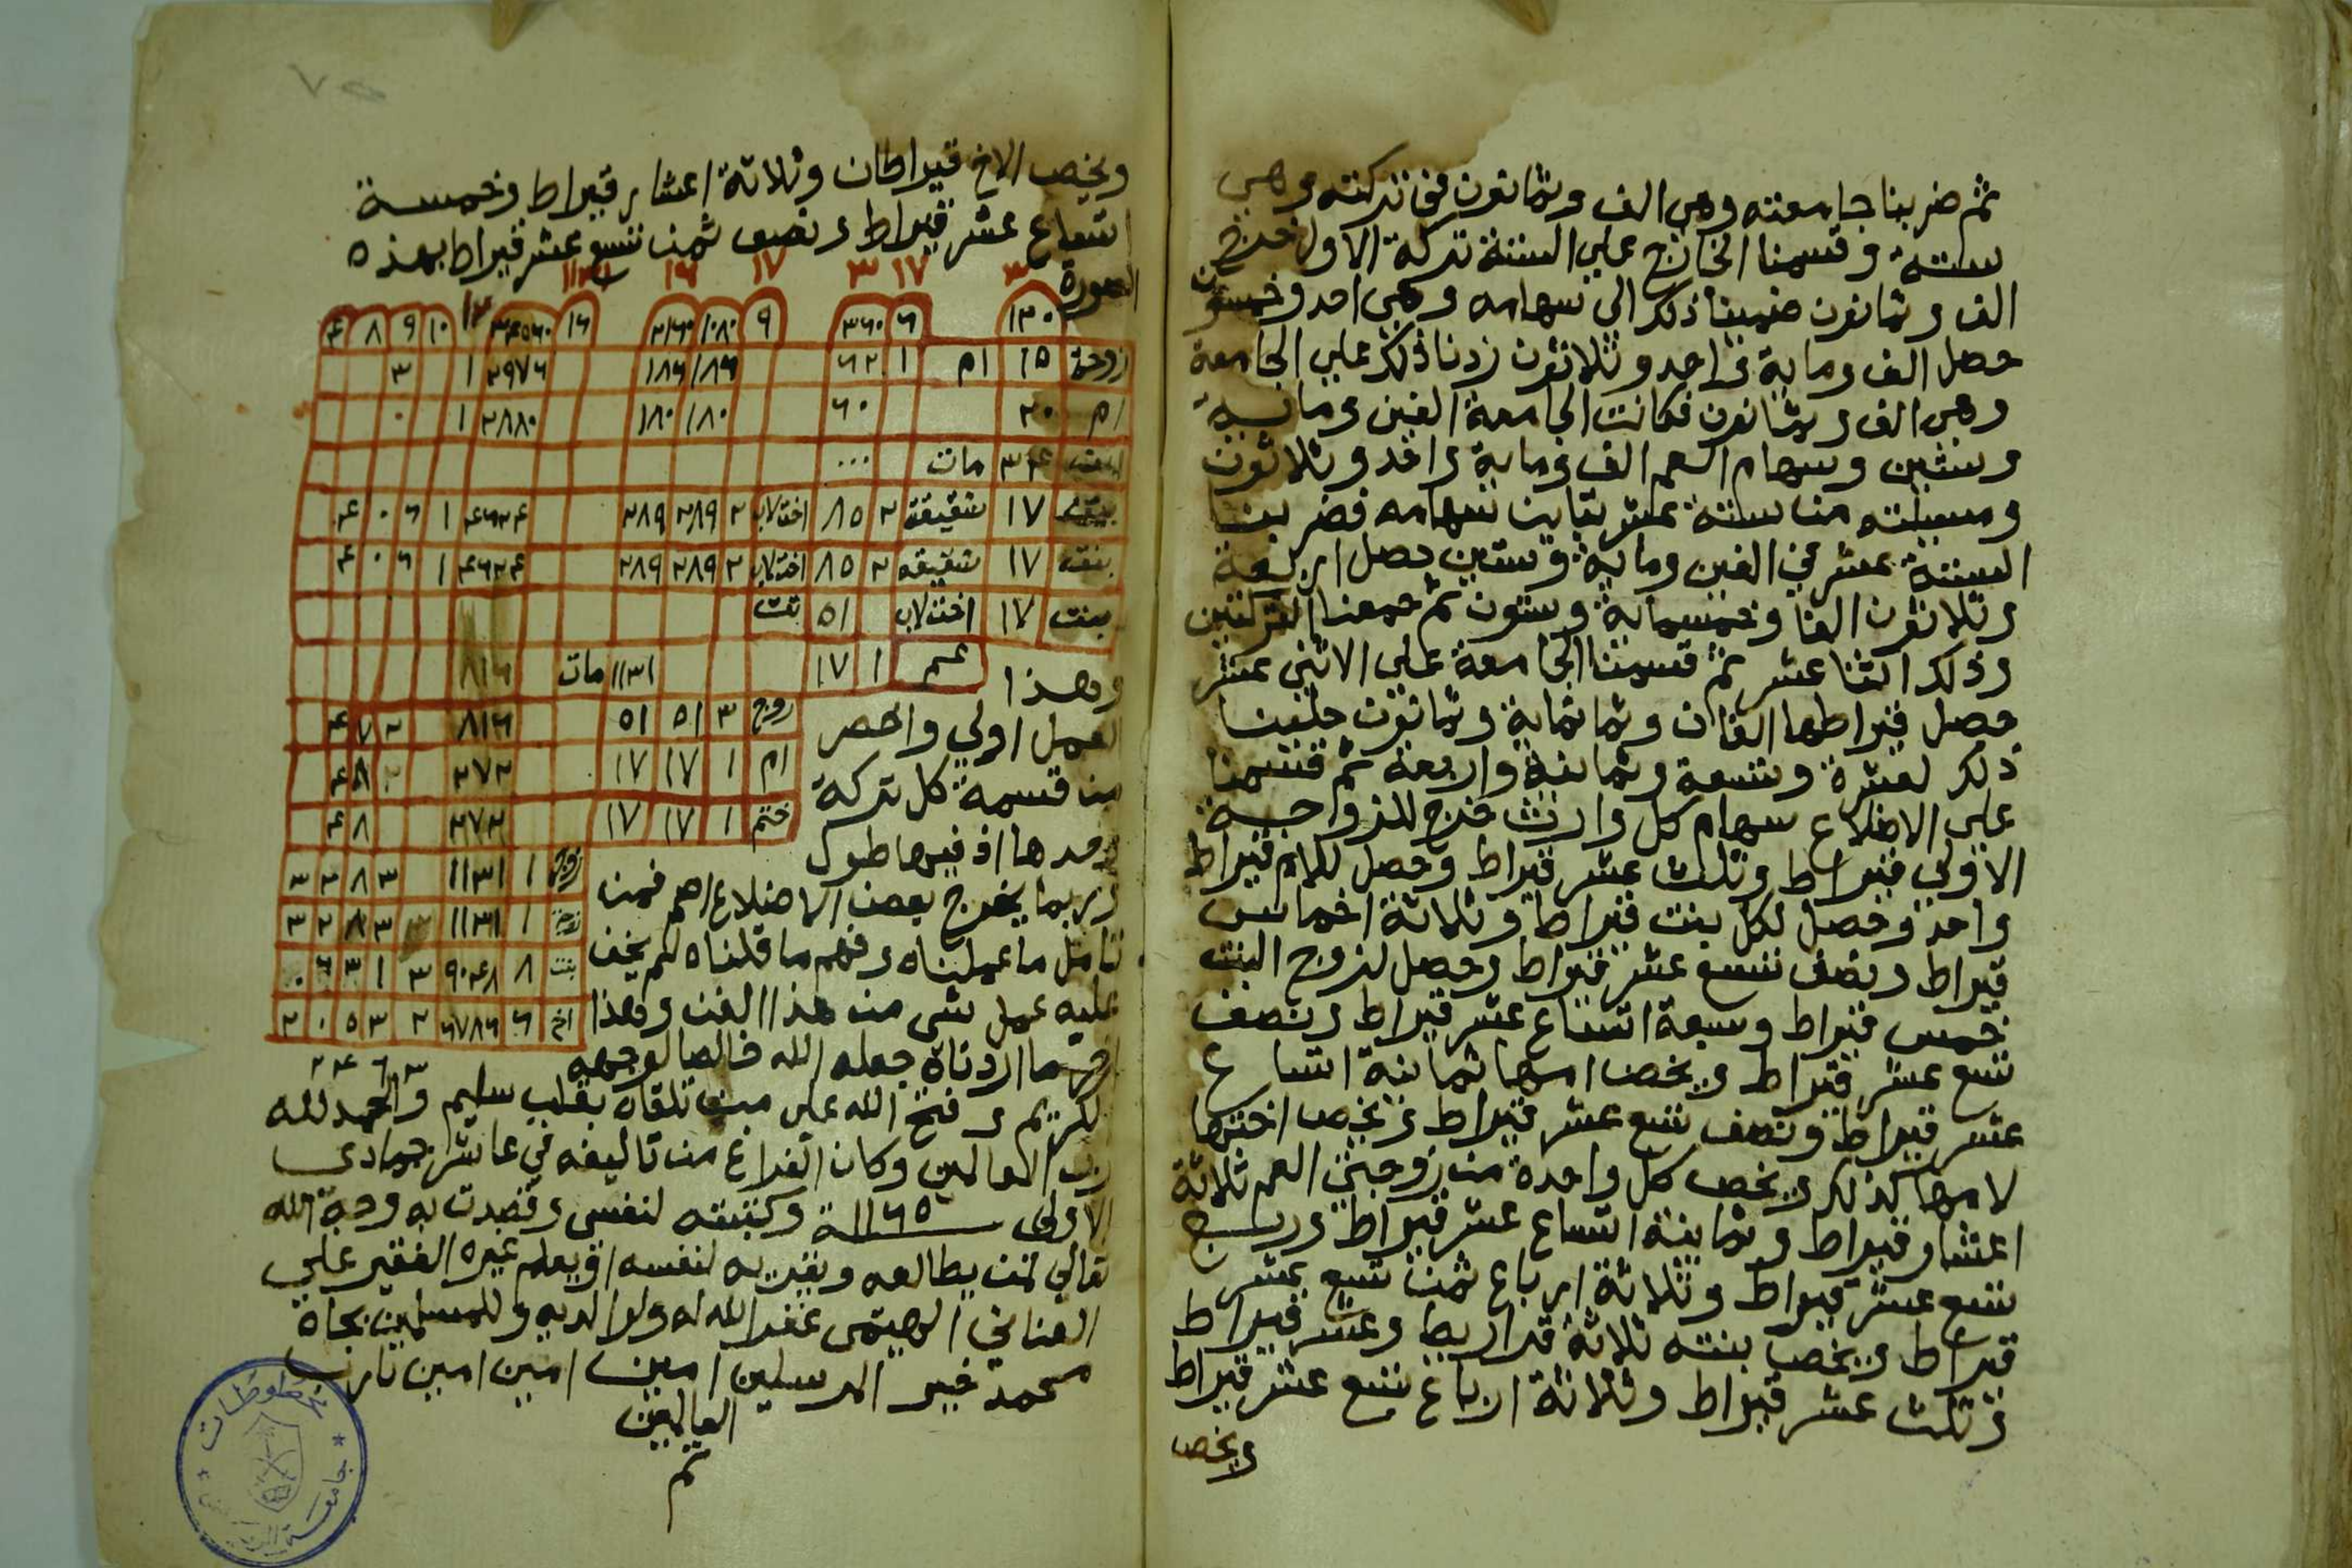 ثم ضربنا جامعته وهي الف وثمانون في تركته وهي
ستة وقسمنا الخارج علي الستة تركة الاول خرج
الف وثمانون ضربنا ذلك الي سهامه وهي احد وخمسون
حصل الف وماية واحد وثلاثون زدنا ذلك علي الجامعة
وهي الف وثمانون فكانت الجامعة الفين وماية
وستين وسهام العم الف وماية واحد وثلاثون
ومسيلته من ستة عشر تباين سهامه فضربنا
الستة عشر في الفين وماية وستين حصل اربعة
وثلاثون الفا وخمسماية وستون ثم جمعنا التركتين
وذلك اثنا عشر ثم قسمنا الجامعة علي الاثني عشر
حصل قيراطها الفان وثمانماية وثمانون حلينا
ذلك لعشرة وتسعة وثمانية واربعة ثم قسمنا
علي الاضلاع سهام كل وارث خرج للزوجة
الاولي قيراط وثلث عشر قيراط وحصل للام قيراط
واحد وحصل لكل بنت قيراط وثلاثة اخماس
قيراط ونصف تسع عشر قيراط وحصل لزوج البنت
خمس قيراط وسبعة اتساع عشر قيراط ونصف
تسع عشر قيراط ويخص امها ثمانية اتساع
عشر قيراط ونصف تسع عشر قيراط ويخص اختها
لامها كذلك ويخص كل واحدة من زوجتي العم ثلاثة
اعشار قيراط وثمانية اتساع عشر قيراط وربع
تسع عشر قيراط وثلاثة ارباع ثمن تسع عشر
قيراط ويخص بنته ثلاثة قراريط وعشر قيراط
وثلث عشر قيراط وثلاثة ارباع تسع عشر قيراط
ويخص
ويخص الاخ قيراطان وثلاثة اعشار قيراط وخمسة
اتساع عشر قيراط ونصف ثمن تسع عشر قيراط بهذه
الصورة
٣ ١٧ ٣ ١٧ ١٦ ١١٣١
١٢٠ ٦ ٣٦٠ ٩ ١٠٨٠ ٢١٦٠ ١٦ ٣٤٥٦٠ ١٢ ١٠ ٩ ٨ ٤
زوجة ١٥ ام ١ ٦٢ ١٨٦ ١٨٦ ٢٩٧٦ ١ ٣
ام ٢٠ ٦٠ ١٨٠ ١٨٠ ٢٨٨٠ ١ ٠
بنت ٣٤ مات ٠٠٠
بنت ١٧ شقيقة ٢ ٨٥ اخت لاب ٢ ٢٨٩ ٢٨٩ ٤٦٢٤ ١ ٦ ٠ ٤
بنت ١٧ شقيقه ٢ ٨٥ اخت لاب ٢ ٢٨٩ ٢٨٩ ٤٦٢٤ ١ ٦ ٠ ٤
بنت ١٧ اخت لاب ٥١
عم ١ ١٧ ١١٣١ مات ٨١٦
زوج ٣ ٥١ ٥١ ٨١٦ ٢ ٧ ٤
ام ١ ١٧ ١٧ ٢٧٢ ٨ ٤
ختم ١ ١٧ ١٧ ٢٧٢ ٨ ٤
زوجة ١ ١١٣١ ٣ ٨ ٢ ٣
زوجة ١ ١١٣١ ٣ ٨ ٢ ٣
بنت ٨ ٩٠٤٨ ٣ ١ ٣ ٦ ٠
اخ ٦ ٦٧٨٦ ٢ ٣ ٥ ٠ ٢
٣ ٦ ٤ ٢
وهذا
العمل اولي واخصر
من قسمة كل تركة
وحدها اذ فيها طول
وربما يخرج بعض الاضلاع اصم فمن
تامل ما عملناه وفهم ما قلناه لم يخف
عليه عمل شي من هذا الفن وهذا
اخر ما اردناه جعله الله خالصا لوجهه
الكريم وفتح الله علي من تلقاه بقلب سليم والحمد لله
رب العالمين وكان الفراغ من تاليفه في عاشر جمادي
الاولي سنة ١١٦٥ وكتبته لنفسي وقصدت به وجه الله
تعالي لمن يطالعه ويقريه لنفسه او يعلم غيره الفقير علي
العناني الهيتمي غفر الله له ولوالديه وللمسلمين بجاه
محمد خير المرسلين امين امين امين يارب
العالمين
تم